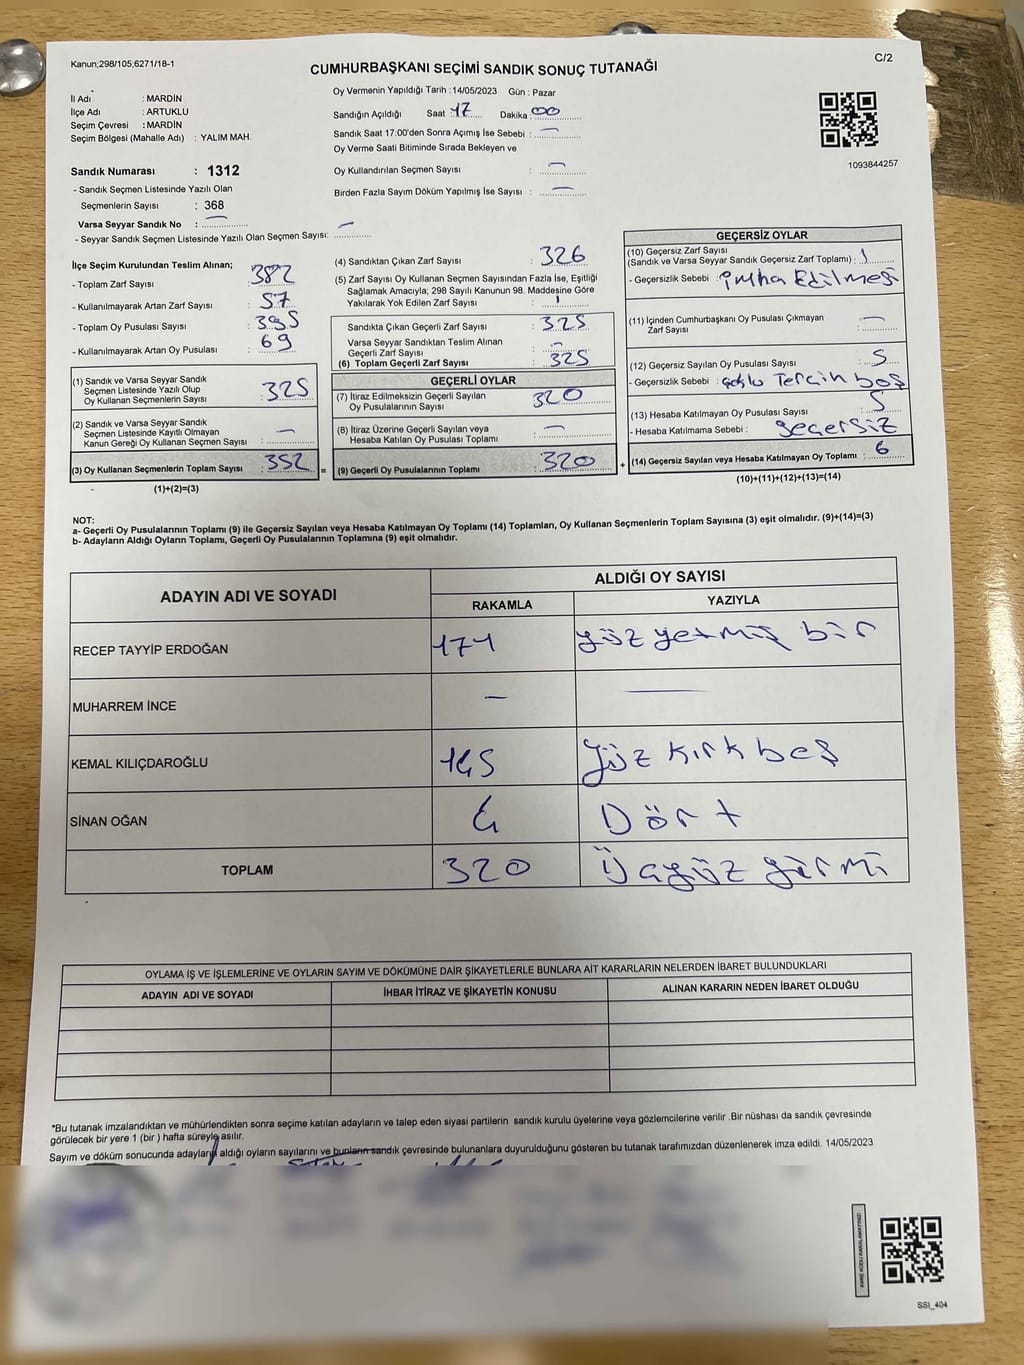 Kanun;298/105;6271/18-1
CUMHURBAŞKANI SEÇİMİ SANDIK SONUÇ TUTANAĞI
C/2
İl Adı : MARDİN
İlçe Adı : ARTUKLU
Seçim Çevresi : MARDİN
Seçim Bölgesi (Mahalle Adı) : YALIM MAH.
Oy Vermenin Yapıldığı Tarih : 14/05/2023 Gün : Pazar
Sandığın Açıldığı Saat 17 Dakika : 00
Sandık Saat 17:00'den Sonra Açımış İse Sebebi : —
Oy Verme Saati Bitiminde Sırada Bekleyen ve
Oy Kullandırılan Seçmen Sayısı : —
Birden Fazla Sayım Döküm Yapılmış İse Sayısı : —
1093844257
Sandık Numarası : 1312
- Sandık Seçmen Listesinde Yazılı Olan
Seçmenlerin Sayısı : 368
Varsa Seyyar Sandık No : —
- Seyyar Sandık Seçmen Listesinde Yazılı Olan Seçmen Sayısı: —
İlçe Seçim Kurulundan Teslim Alınan;
- Toplam Zarf Sayısı : 382
- Kullanılmayarak Artan Zarf Sayısı : 57
- Toplam Oy Pusulası Sayısı : 395
- Kullanılmayarak Artan Oy Pusulası : 69
(1) Sandık ve Varsa Seyyar Sandık
Seçmen Listesinde Yazılı Olup
Oy Kullanan Seçmenlerin Sayısı : 325
(2) Sandık ve Varsa Seyyar Sandık
Seçmen Listesinde Kayıtlı Olmayan
Kanun Gereği Oy Kullanan Seçmen Sayısı : —
(3) Oy Kullanan Seçmenlerin Toplam Sayısı : 352 =
(1)+(2)=(3)
(4) Sandıktan Çıkan Zarf Sayısı : 326
(5) Zarf Sayısı Oy Kullanan Seçmen Sayısından Fazla İse, Eşitliği
Sağlamak Amacıyla, 298 Sayılı Kanunun 98. Maddesine Göre
Yakılarak Yok Edilen Zarf Sayısı : 1
Sandıkta Çıkan Geçerli Zarf Sayısı : 325
Varsa Seyyar Sandıktan Teslim Alınan
Geçerli Zarf Sayısı : —
(6) Toplam Geçerli Zarf Sayısı : 325
GEÇERLİ OYLAR
(7) İtiraz Edilmeksizin Geçerli Sayılan
Oy Pusulalarının Sayısı : 320
(8) İtiraz Üzerine Geçerli Sayılan veya
Hesaba Katılan Oy Pusulası Toplamı : —
(9) Geçerli Oy Pusulalarının Toplamı : 320 +
GEÇERSİZ OYLAR
(10) Geçersiz Zarf Sayısı
(Sandık ve Varsa Seyyar Sandık Geçersiz Zarf Toplamı) : 1
- Geçersizlik Sebebi : imha Edilmesi
(11) İçinden Cumhurbaşkanı Oy Pusulası Çıkmayan
Zarf Sayısı : —
(12) Geçersiz Sayılan Oy Pusulası Sayısı : 5
- Geçersizlik Sebebi : Tercih boş
(13) Hesaba Katılmayan Oy Pusulası Sayısı : 5
- Hesaba Katılmama Sebebi : geçersiz
(14) Geçersiz Sayılan veya Hesaba Katılmayan Oy Toplamı : 6
(10)+(11)+(12)+(13)=(14)
NOT:
a- Geçerli Oy Pusulalarının Toplamı (9) ile Geçersiz Sayılan veya Hesaba Katılmayan Oy Toplamı (14) Toplamları, Oy Kullanan Seçmenlerin Toplam Sayısına (3) eşit olmalıdır. (9)+(14)=(3)
b- Adayların Aldığı Oyların Toplamı, Geçerli Oy Pusulalarının Toplamına (9) eşit olmalıdır.
ADAYIN ADI VE SOYADI
ALDIĞI OY SAYISI
RAKAMLA YAZIYLA
RECEP TAYYİP ERDOĞAN 171 yüz yetmiş bir
MUHARREM İNCE — —
KEMAL KILIÇDAROĞLU 145 Yüz kırk beş
SİNAN OĞAN 4 Dört
TOPLAM 320 Üçyüz yirmi
OYLAMA İŞ VE İŞLEMLERİNE VE OYLARIN SAYIM VE DÖKÜMÜNE DAİR ŞİKAYETLERLE BUNLARA AİT KARARLARIN NELERDEN İBARET BULUNDUKLARI
ADAYIN ADI VE SOYADI İHBAR İTİRAZ VE ŞİKAYETİN KONUSU ALINAN KARARIN NEDEN İBARET OLDUĞU
*Bu tutanak imzalandıktan ve mühürlendikten sonra seçime katılan adayların ve talep eden siyasi partilerin sandık kurulu üyelerine veya gözlemcilerine verilir .Bir nüshası da sandık çevresinde
görülecek bir yere 1 (bir ) hafta süreyle asılır.
Sayım ve döküm sonucunda adayların aldığı oyların sayılarını ve bunların sandık çevresinde bulunanlara duyurulduğunu gösteren bu tutanak tarafımızdan düzenlenerek imza edildi. 14/05/2023
KARE KODU KARALAMAYINIZ!
SSI_404